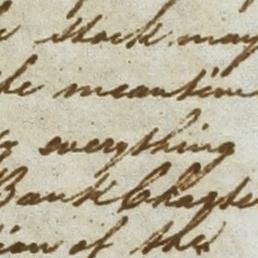 stock may
the meantime
everything
Bank Charter
tion of the